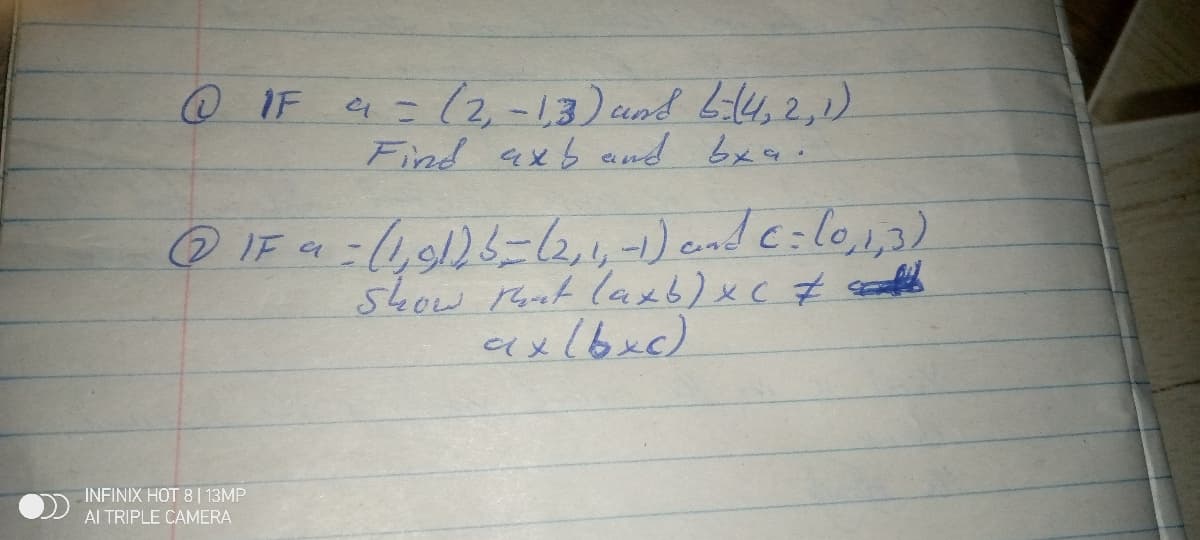 ① IF a = (2, -1,3) and b=(4, 2, 1)
Find axb and bxa.
② IF a = (1,0,1), b=(2,1,-1) and c=(0,1,3)
Show that (axb) x c ≠
ax(bxc)
INFINIX HOT 8 | 13MP
AI TRIPLE CAMERA